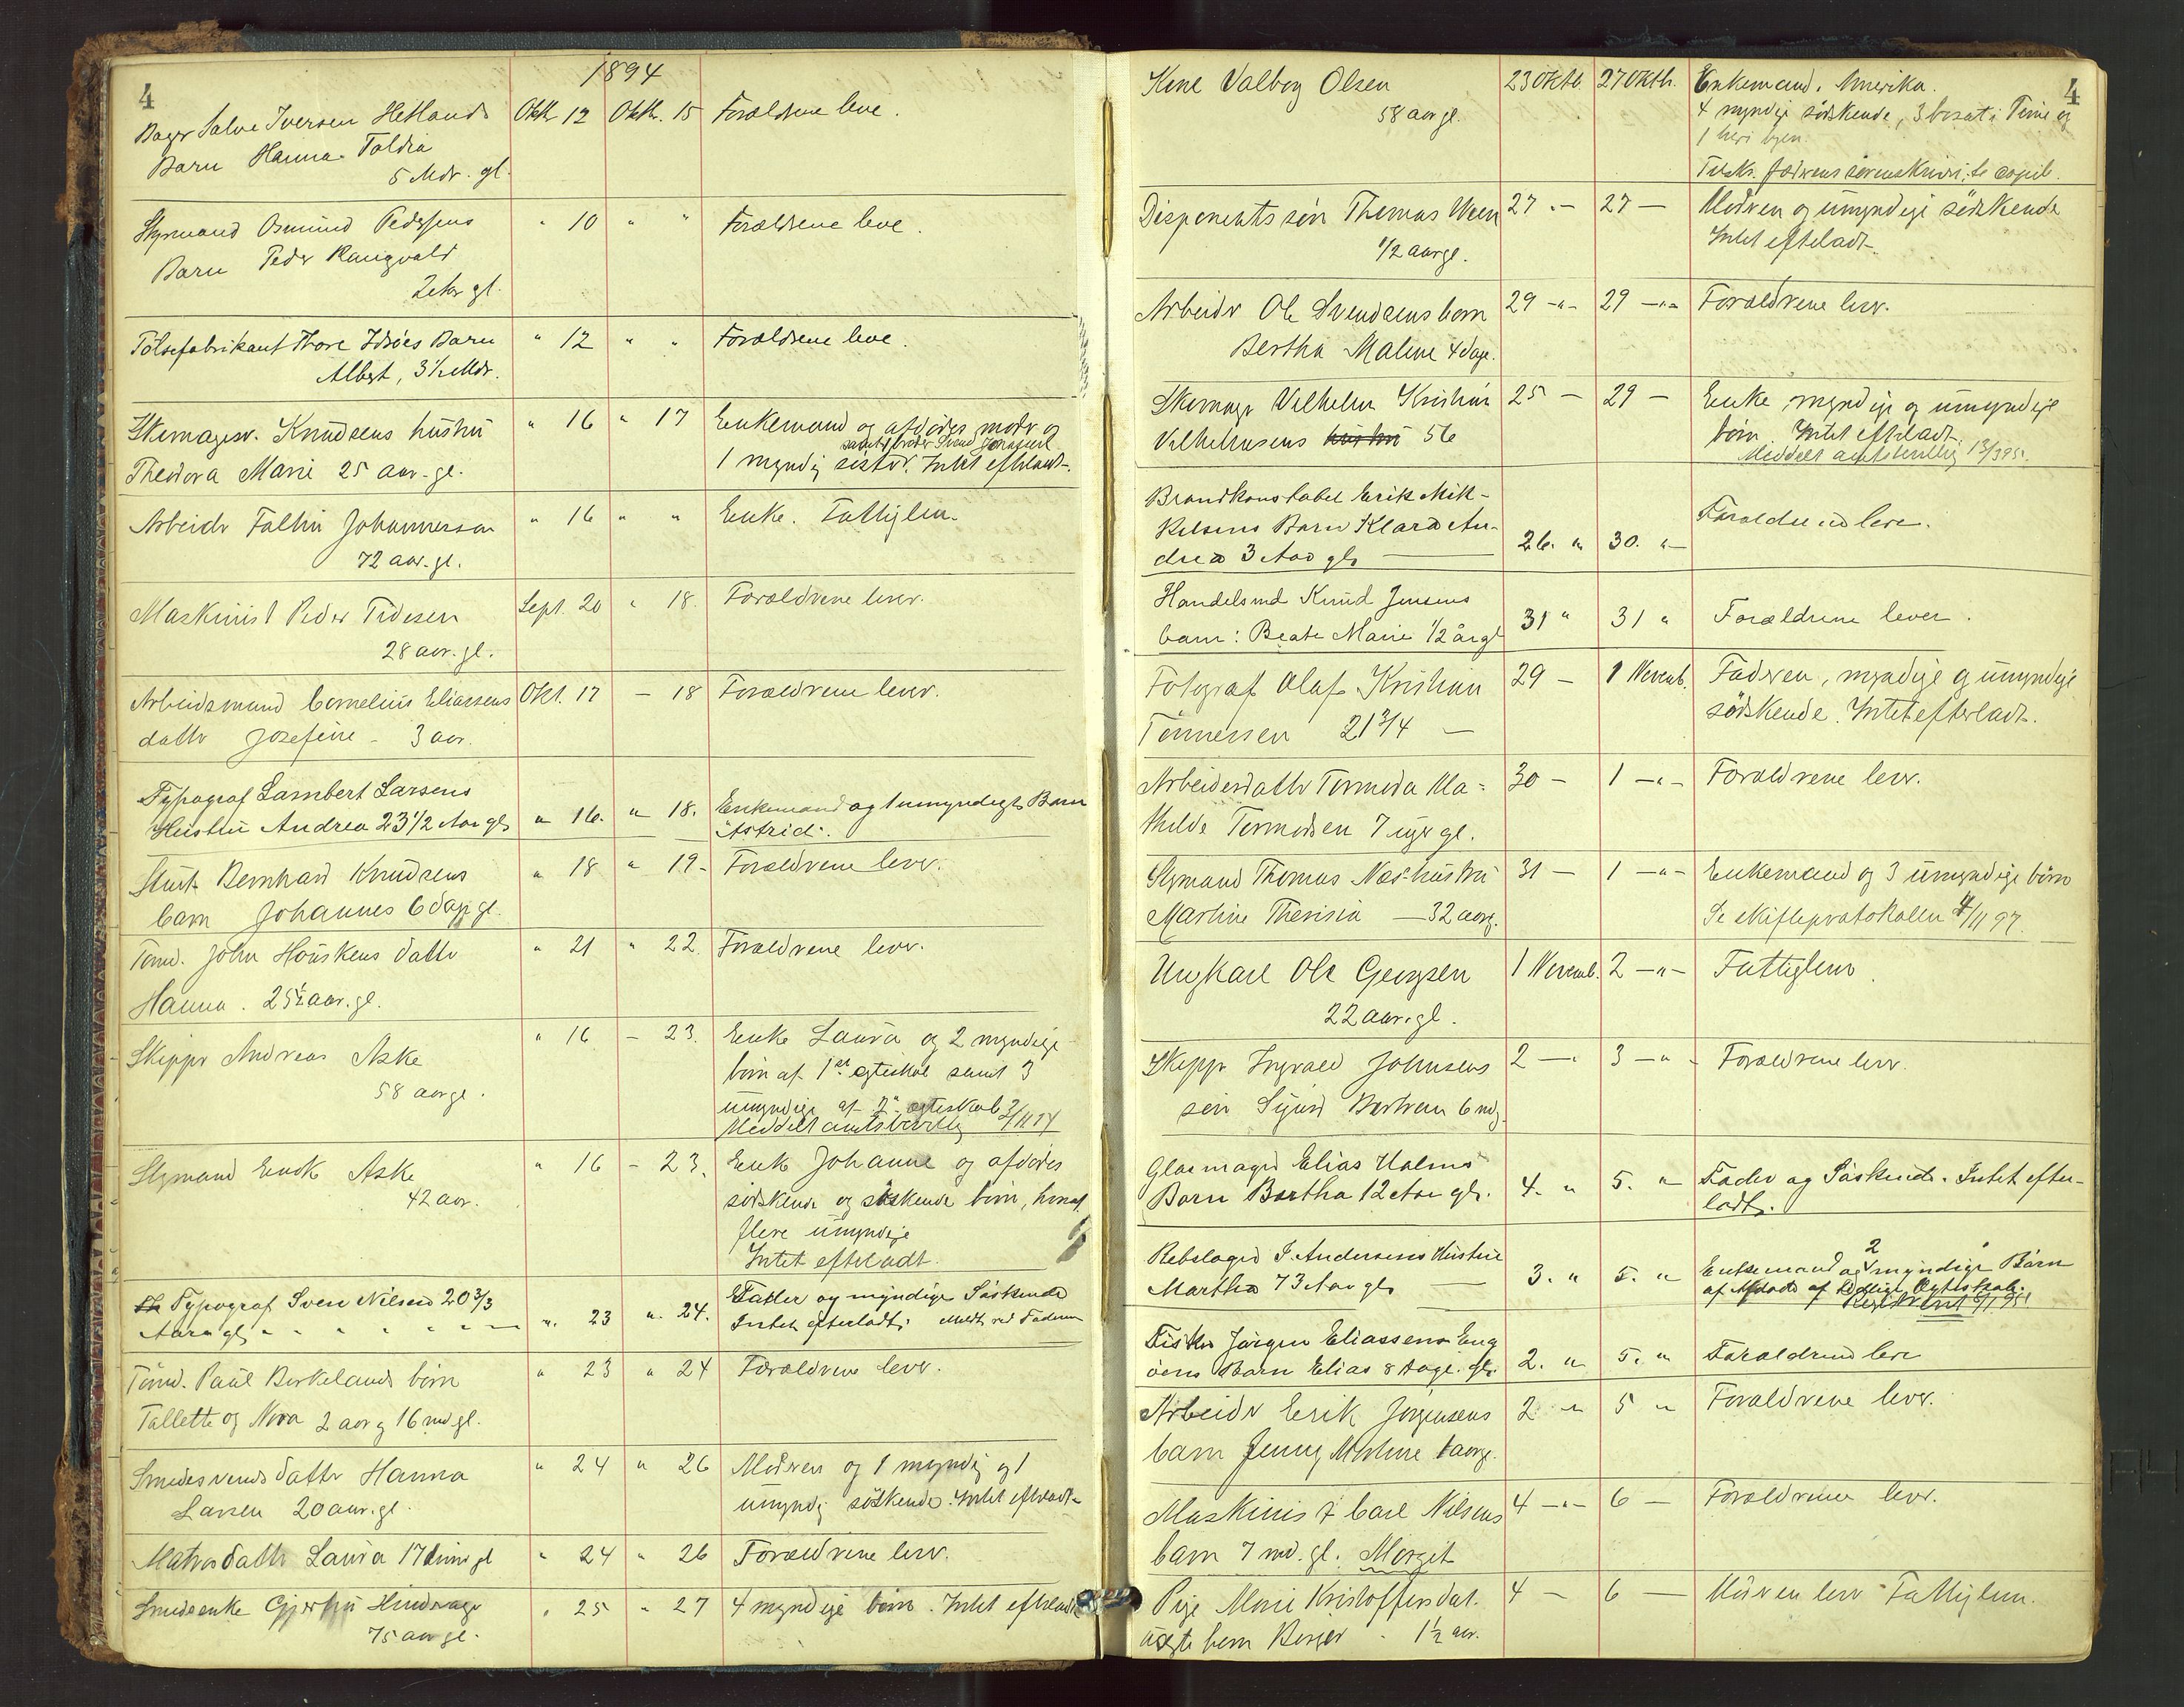 4
1894
Bager Salve Iversen Hetlands Oktbr 12 Oktbr. 15 Forældrene leve.
Barn Hanna Taldia
5 Mdr. gl.
Styrmand Osmund Pedersens " 10 " " Forældrene leve.
Barn Peder Rangvald
2 Aar gl.
Pølsefabrikant Thore Idsöes Barn " 12 " " Forældrene leve.
Albert, 3½ Mdr.
Skomagersv. Knudsens hustru " 16 " 17 Enkemand og afdødes moder og
samt broder Svend
Theodora Marie 25 aar. gl. 1 myndig søster. Intet efterladt.
Arbeider Johannessen " 16 " " Enke. Fattiglem.
72 aar. gl.
Maskinist Peder Tidesen Sept. 20 " 18. Forældrene lever.
28 aar. gl.
Arbeidsmand Cornelius Eliassens Okt. 17 — 18 Forældrene lever.
datter Josefine - 3 aar.
Typograf Lambert Larsens
Hustru Andrea 23 1/2 Aar gl. " 16. " 18. Enkemand og 1 umyndigt Barn
"Astrid".
Bernhard Knudsens " 18 " 19 - Forældrene lever.
barn Johannes 6 dage gl.
Tømd. John Houskens datter " 21 " 22. Forældrene lever.
Hanna. 25½ aar. gl.
Skipper Andreas Aske " 16 — 23. Enke Laura og 2 myndige
58 aar gl. børn af 1ste egteskab samt 3
umyndige af 2. egteskab
Meddelt amtsbevilling 3/11 94
Styrmand Enok Aske " 16 - 23. Enke Johanne og afdødes
42 aar. södskende og søskende børn, hvoraf
flere umyndige
Intet efterladt.
Typograf Sven Nilsen 20 3/3 Fader og myndige Søskende
Aar gl. " 23 " 24. Intet efterladt. Meldt ved Faderen
Tømd. Paul Birkelands børn " 23 " 24 Forældrene lever.
Tallette og Nora 2 aar og 16 md gl.
Smedesvends datter Hanna " 24 " 26 Moderen og 1 myndig og 1
Larsen 20 aar. gl. umyndig södskende. Intet efterladt.
Matrosdatter Laura 17 timer gl " 24 " 26 Forældrene lever.
Smedeenke Gjertru " 25 " 27 4 myndige børn. Intet efterladt
75 aar gl.
4
Kone Valborg Olsen 23 Oktb. 27 Oktb. Enkemand. Amerika.
58 aar gl. 4 myndige södskende, 3 bosat i Time og
1 her i byen.
Disponents søn Thomas Ween 27 - 27 - Moderen og umyndige södskende
1/2 aar gl. Intet efterladt.
Arbeider Ole Svendsens barn 29 - 29 - Forældrene lever.
Bertha Maline 4 dage.
Skomager Vilhelm Kristian 25 - 29 - Enke myndige og umyndige
Vilhelmsens hustru 56 børn. Intet efterladt.
Meddelt amtsbevillig 13/3 95.
Brandkonstabel Erik Mik-
kelsens Barn Klara An- Forældrene leve.
drea 3 Aar gl. 26. " 30. "
Handelsmd Knud Jensens
barn: Beate Marie 1/2 år gl 31 " 31 " Forældrene lever.
Fotograf Olaf Kristian 29 - 1 Novemb. Faderen, myndige og umyndige
Tönnessen 21 3/4 — södskende. Intet efterladt.
Arbeiderdatter Tormoda Ma- 30 - 1 - Forældrene lever.
thilde Tormodsen 7 uger gl.
Styrmand Thomas Næs hustru 31 - 1 - Enkemand og 3 umyndige børn
Martine Theresia — 32 aar g. Se skifteprotokollen 4/11 97.
Ungkarl Ole Georgsen 1 Novemb. 2 - Fattiglem
22 aar. gl.
Skipper Ingvald Johnsens 2 - 3 - Forældrene lever.
søn Sigurd Bertran 6 md.
Glasmager Elias Holms
Barn Bertha 12 Aar gl. 4. " 5. " Fader og Søskende. Intet efter-
ladt.
Rebslager I. Andersens Hustru
Martha 73 Aar gl. 3. " 5. " Enkemand og 2 myndige Børn
af Afdøde af Egteskab.
Fisker Jørgen Eliassens Eng
öens Barn Elias 8 Dage. gl. 2. " 5. " Forældrene leve
Arbeider Erik Jørgensens 2 " 5 " Forældrene lever.
barn Jenny Mathine 1 aar gl.
Maskinist Carl Nilsens 4 - 6 - Forældrene lever.
barn 7 md. gl. Margit
Pige Marie Kristoffersdat. 4 - 6 - Moderen lever Fattiglem.
uægte barn Berger - 1½ aar.